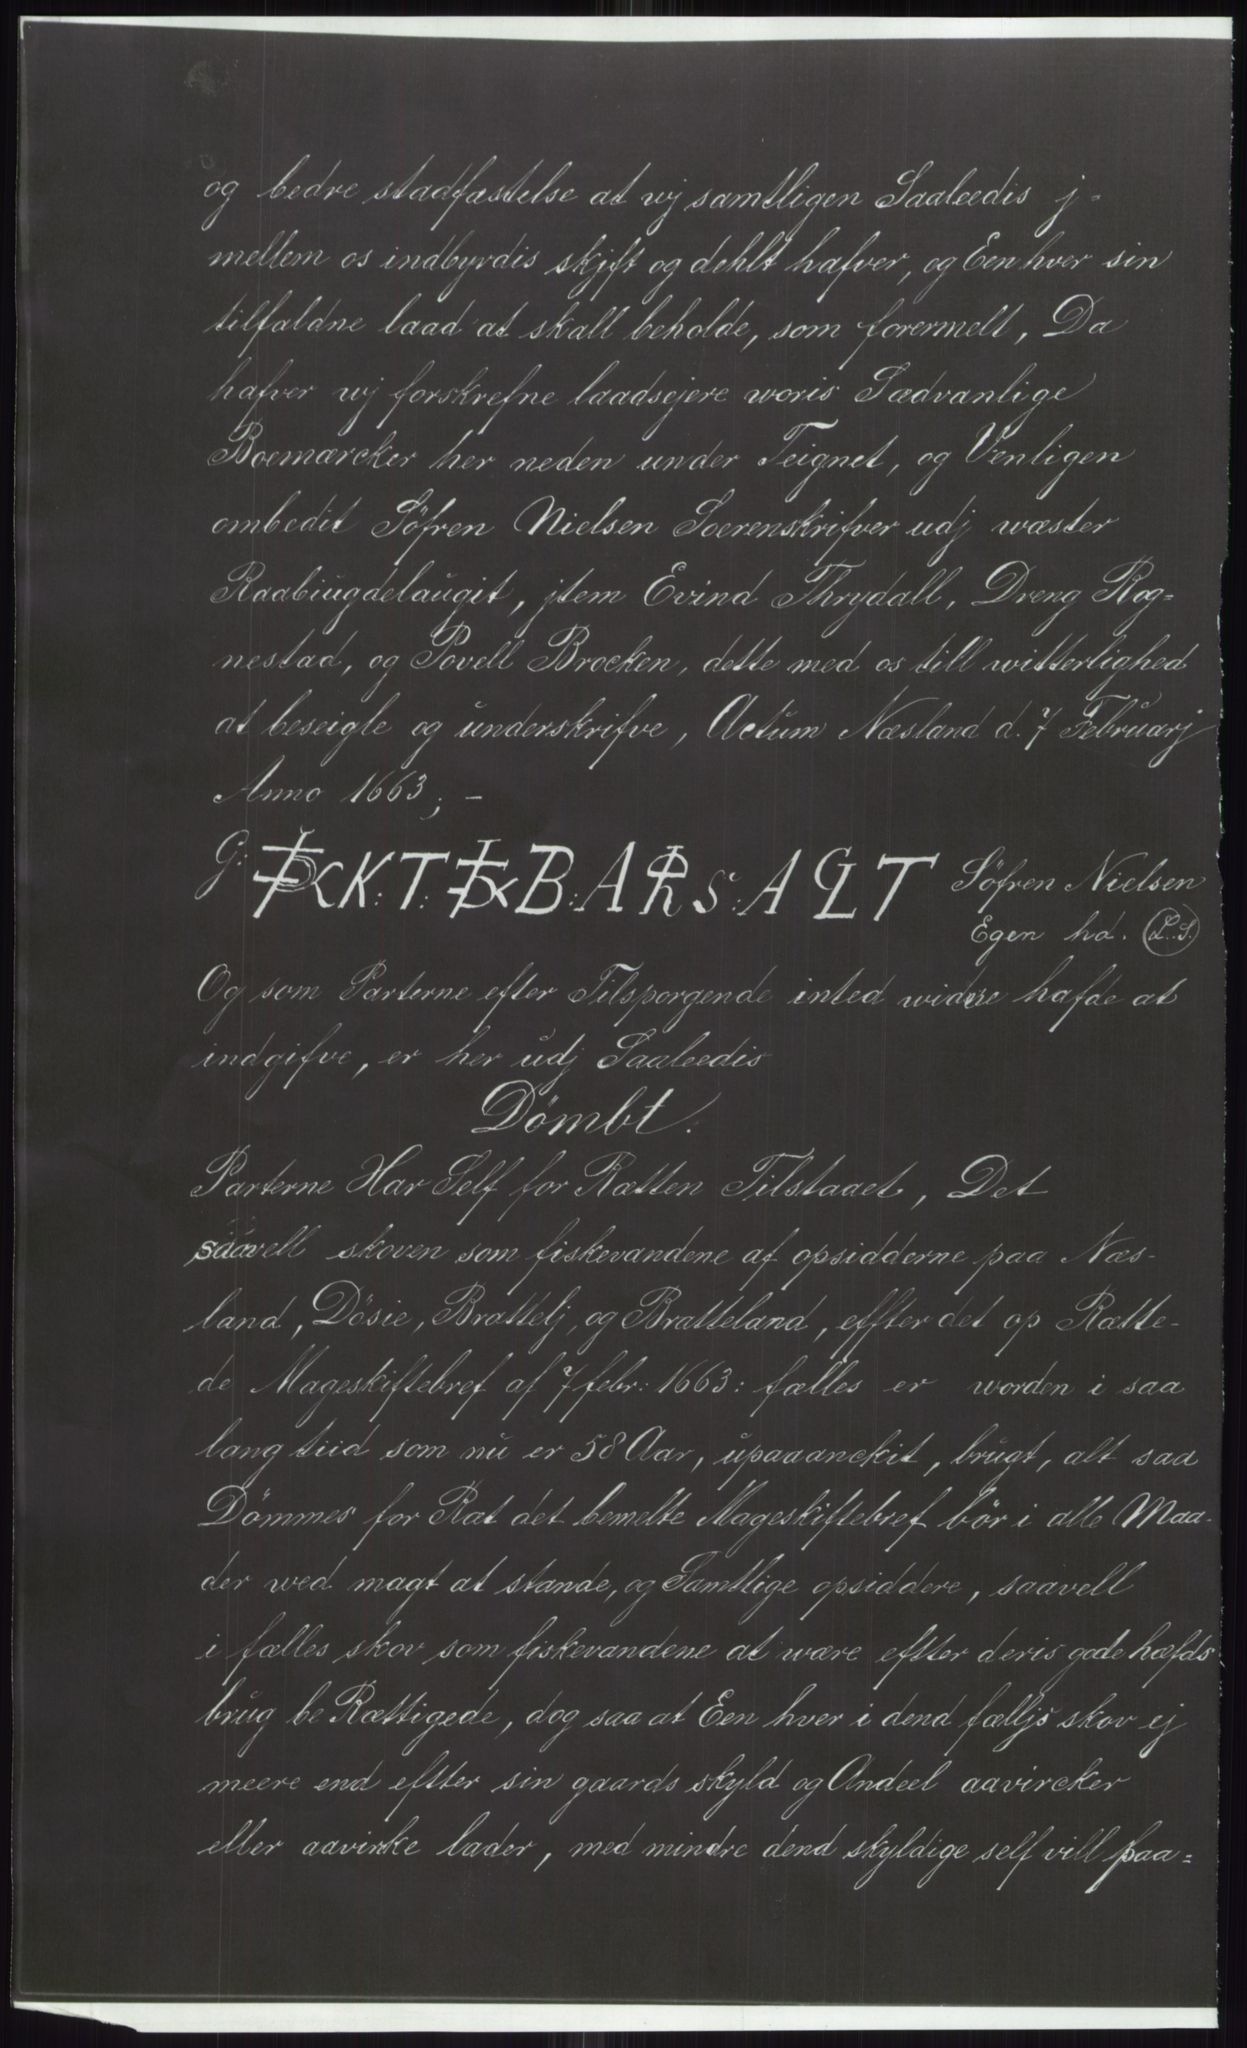 og bedre stadfæstelse at wj samtligen Saaleedis j-
mellem os indbyrdis skjft og dehlt hafver, og Een hver sin
tilfaldne laad at skall beholde, som forermelt, Da
hafver wj forskrefne laadsejere woris Sædvanlige
Boemærcker her neden under Teignet, og Venligen
ombedit Söfren Nielsen Soerenskrifver udj wæster
Raabiugdelaugit, jtem Evind Thrydall, Dreng Rog=
nestad, og Povell Brocken, dette med os till witterlighed
at beseigle og underskrifve, Actum Næsland d. 7 Februarj
Anno 1663; -
G: K: T: B: A R S: A T Söfren Nielsen
Egen hd. L. S.
Og som Parterne efter Tilsporgende inted widre hafde at
indgifve, er her udj Saaleedis
Dömbt.
Parterne Har Self for Rætten Tilstaaet, Det
saavell skoven som fiskevandene af opsidderne paa Næs-
land, Dösie, Brattelj, og Bratteland, effter det op Rætte-
de Mageskiftebref af 7 febr: 1663: fælles er worden i saa
lang tiid som nu er 58 Aar, upaaanckit, brugt, alt saa
Dömmes for Ræt det bemelte Mageskiftebref bör i alle Maa-
der wed magt at stande, og Samtlige opsiddere, saavell
i fælles skov som fiskevandene at være efter deris gode hæfds
brug be Rættigede, dog saa at Een hver i dend fælljs skov ej
meere end efter sin gaards skyld og Andeel aavircker
eller aavirke lader, med mindre dend skyldige self vill paa=